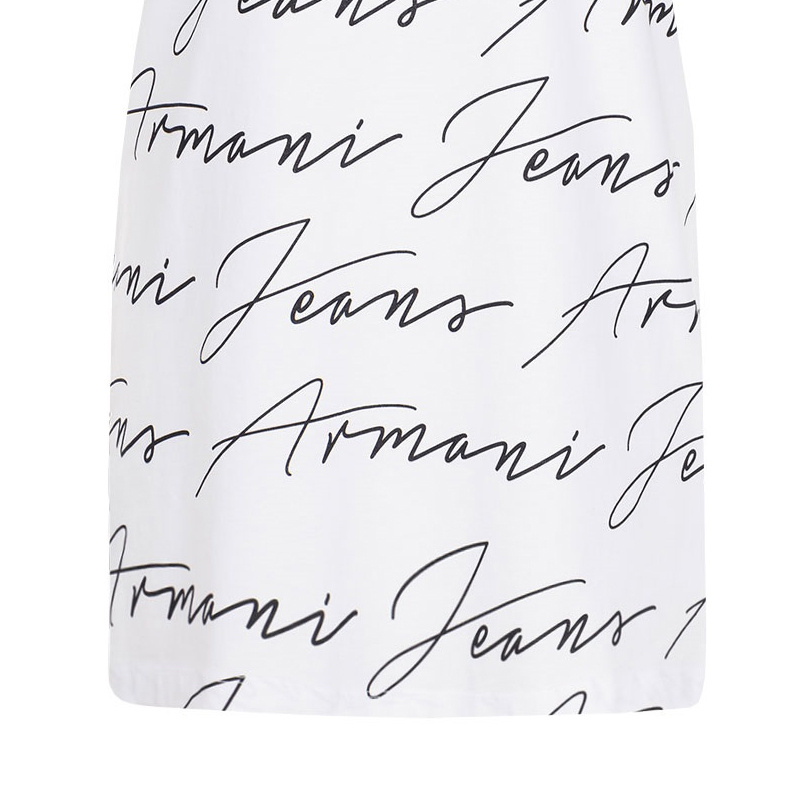 Jeans Arm
Armani Jeans
ani Jeans Arm
ans Armani Je
Armani Jeans